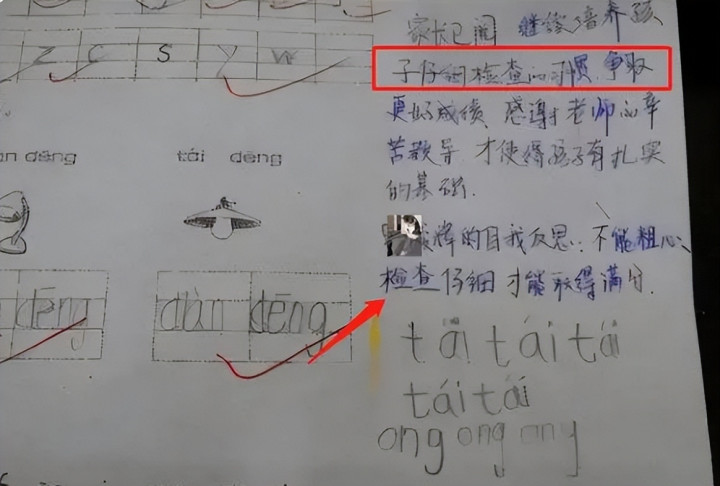 z c s y w
dēng tái dēng
dēng diàn dēng
家长已阅 继续培养孩
子仔细检查的习惯.争取
更好成绩 感谢老师的辛
苦教导.才使得孩子有扎实
的基础.
辉的自我反思:不能粗心、
检查仔细才能取得满分.
tái tái tái
tái tái
ong ong ong